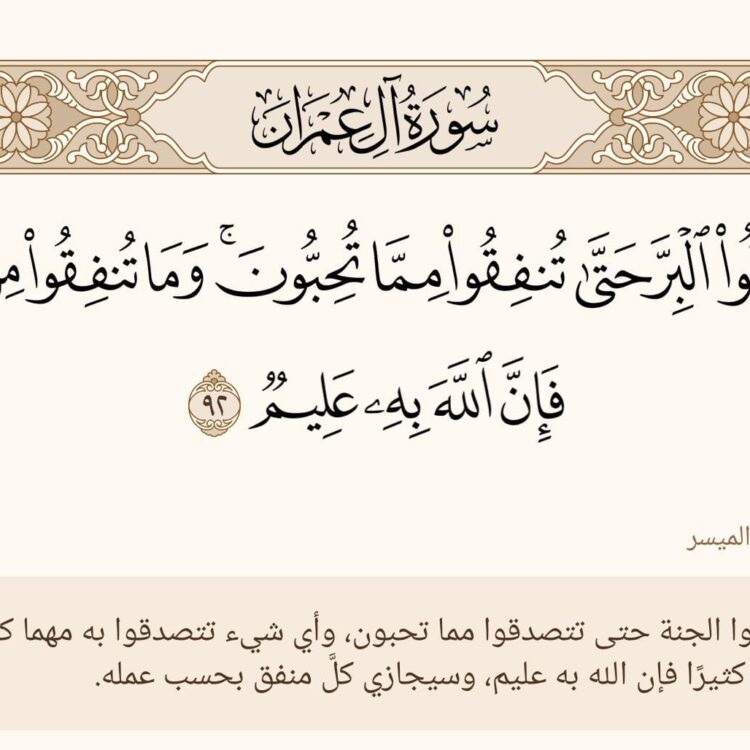 سُورَةُ آلِ عِمْرَانَ
ٱلْبِرَّ حَتَّىٰ تُنفِقُوا۟ مِمَّا تُحِبُّونَ ۚ وَمَا تُنفِقُوا۟
فَإِنَّ ٱللَّهَ بِهِۦ عَلِيمٌ ٩٢
الميسر
وا الجنة حتى تتصدقوا مما تحبون، وأي شيء تتصدقوا به مهما
كثيرًا فإن الله به عليم، وسيجازي كلَّ منفق بحسب عمله.